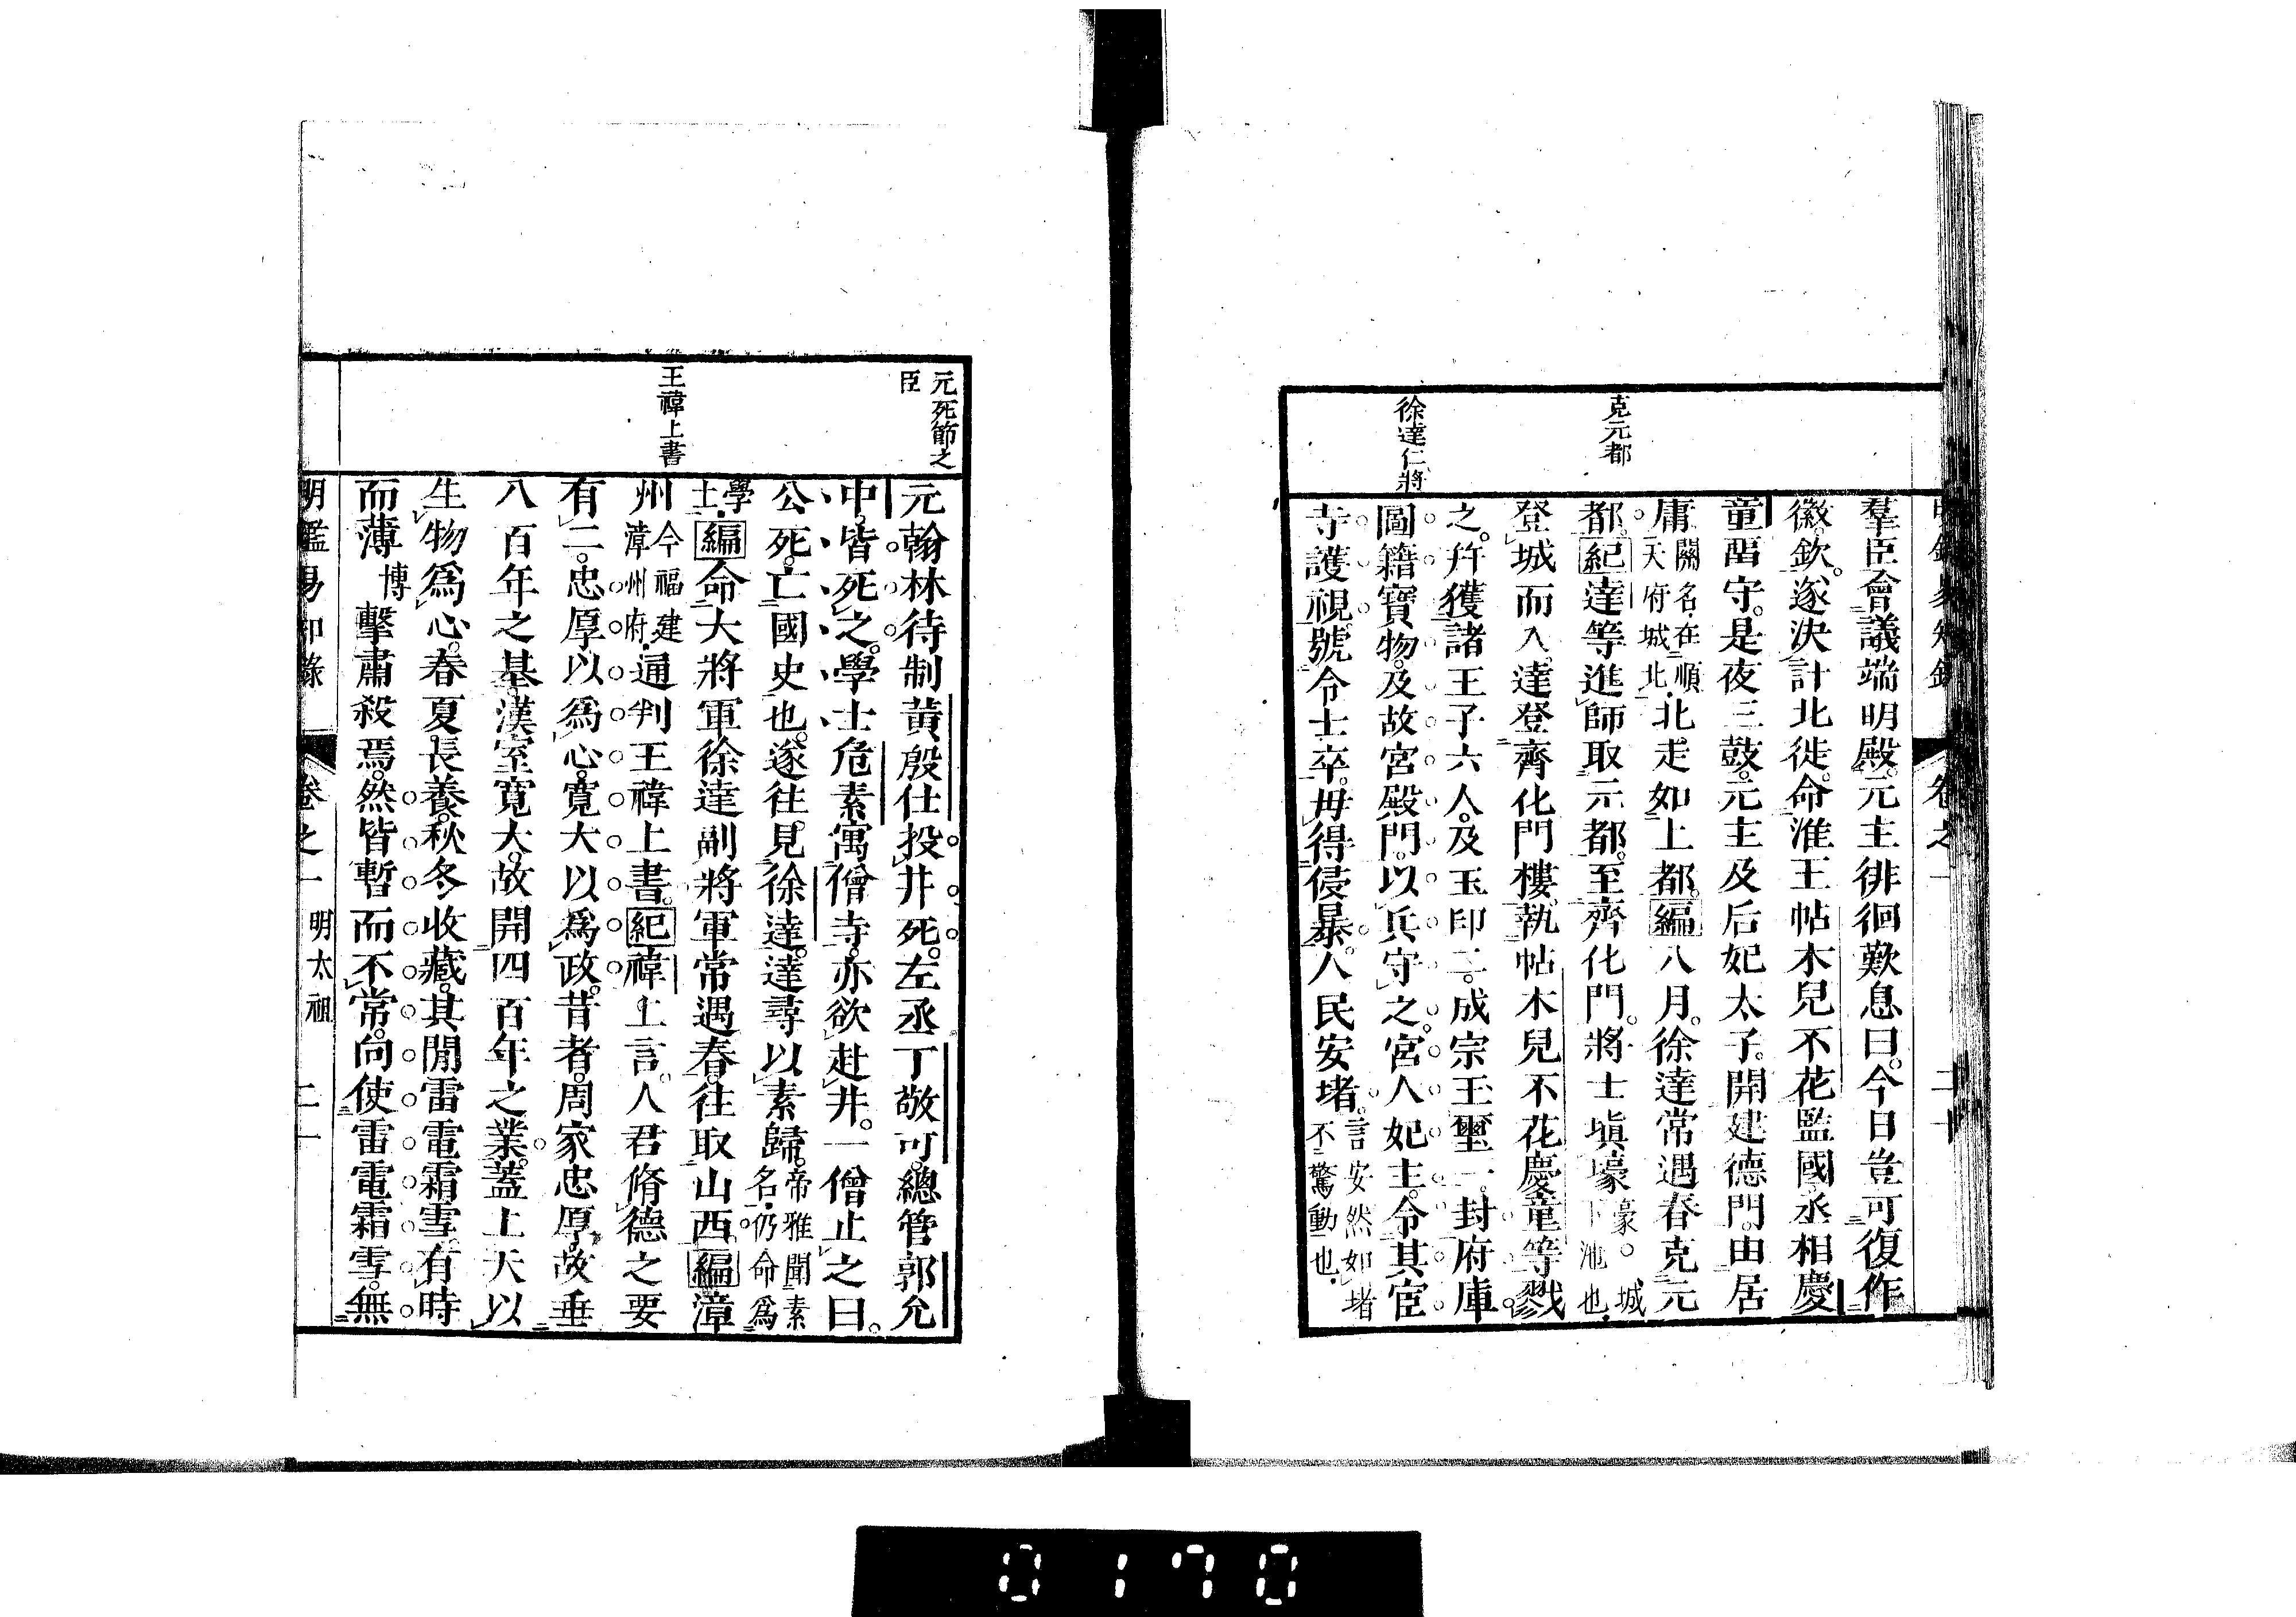 克元都
徐達仁將
羣臣會議端明殿。元主徘徊歎息曰。今日豈可復作
徽欽。遂決計北徙。命淮王帖木兒不花監國丞相慶
童畱守。是夜三鼓。元主及后妃太子。開建德門。由居
庸關名。在順天府城北。北走如上都。編八月。徐達常遇春克元
都。紀達等進師取元都。至齊化門。將士塡壕壕。城下池也。
登城而入。達登齊化門樓。執帖木兒不花慶童等戮
之。幷獲諸王子六人。及玉印二。成宗玉璽一。封府庫
圖籍寶物。及故宮殿門。以兵守之。宮人妃主。令其宦
寺護視。號令士卒。毋得侵暴。人民安堵。言安然如堵不驚動也。
元死節之臣
王禕上書
元翰林待制黃殷仕投井死。左丞丁敬可。總管郭允
中。皆死之。學士危素寓僧寺。亦欲赴井。一僧止之曰。
公死。亡國史也。遂往見徐達。達尋以素歸。帝雅聞素名。仍命爲
學士。編命大將軍徐達副將軍常遇春。往取山西。編漳
州今福建漳州府。通判王禕上書。紀禕上言。人君脩德之要
有二。忠厚以爲心。寬大以爲政。昔者。周家忠厚。故垂
八百年之基。漢室寬大。故開四百年之業。蓋上天以
生物爲心。春夏長養。秋冬收藏。其閒雷電霜雪。有時
而薄博擊肅殺焉。然皆暫而不常。向使雷電霜雪。無
明鑑易知錄 卷之一 明太祖 二一
0170